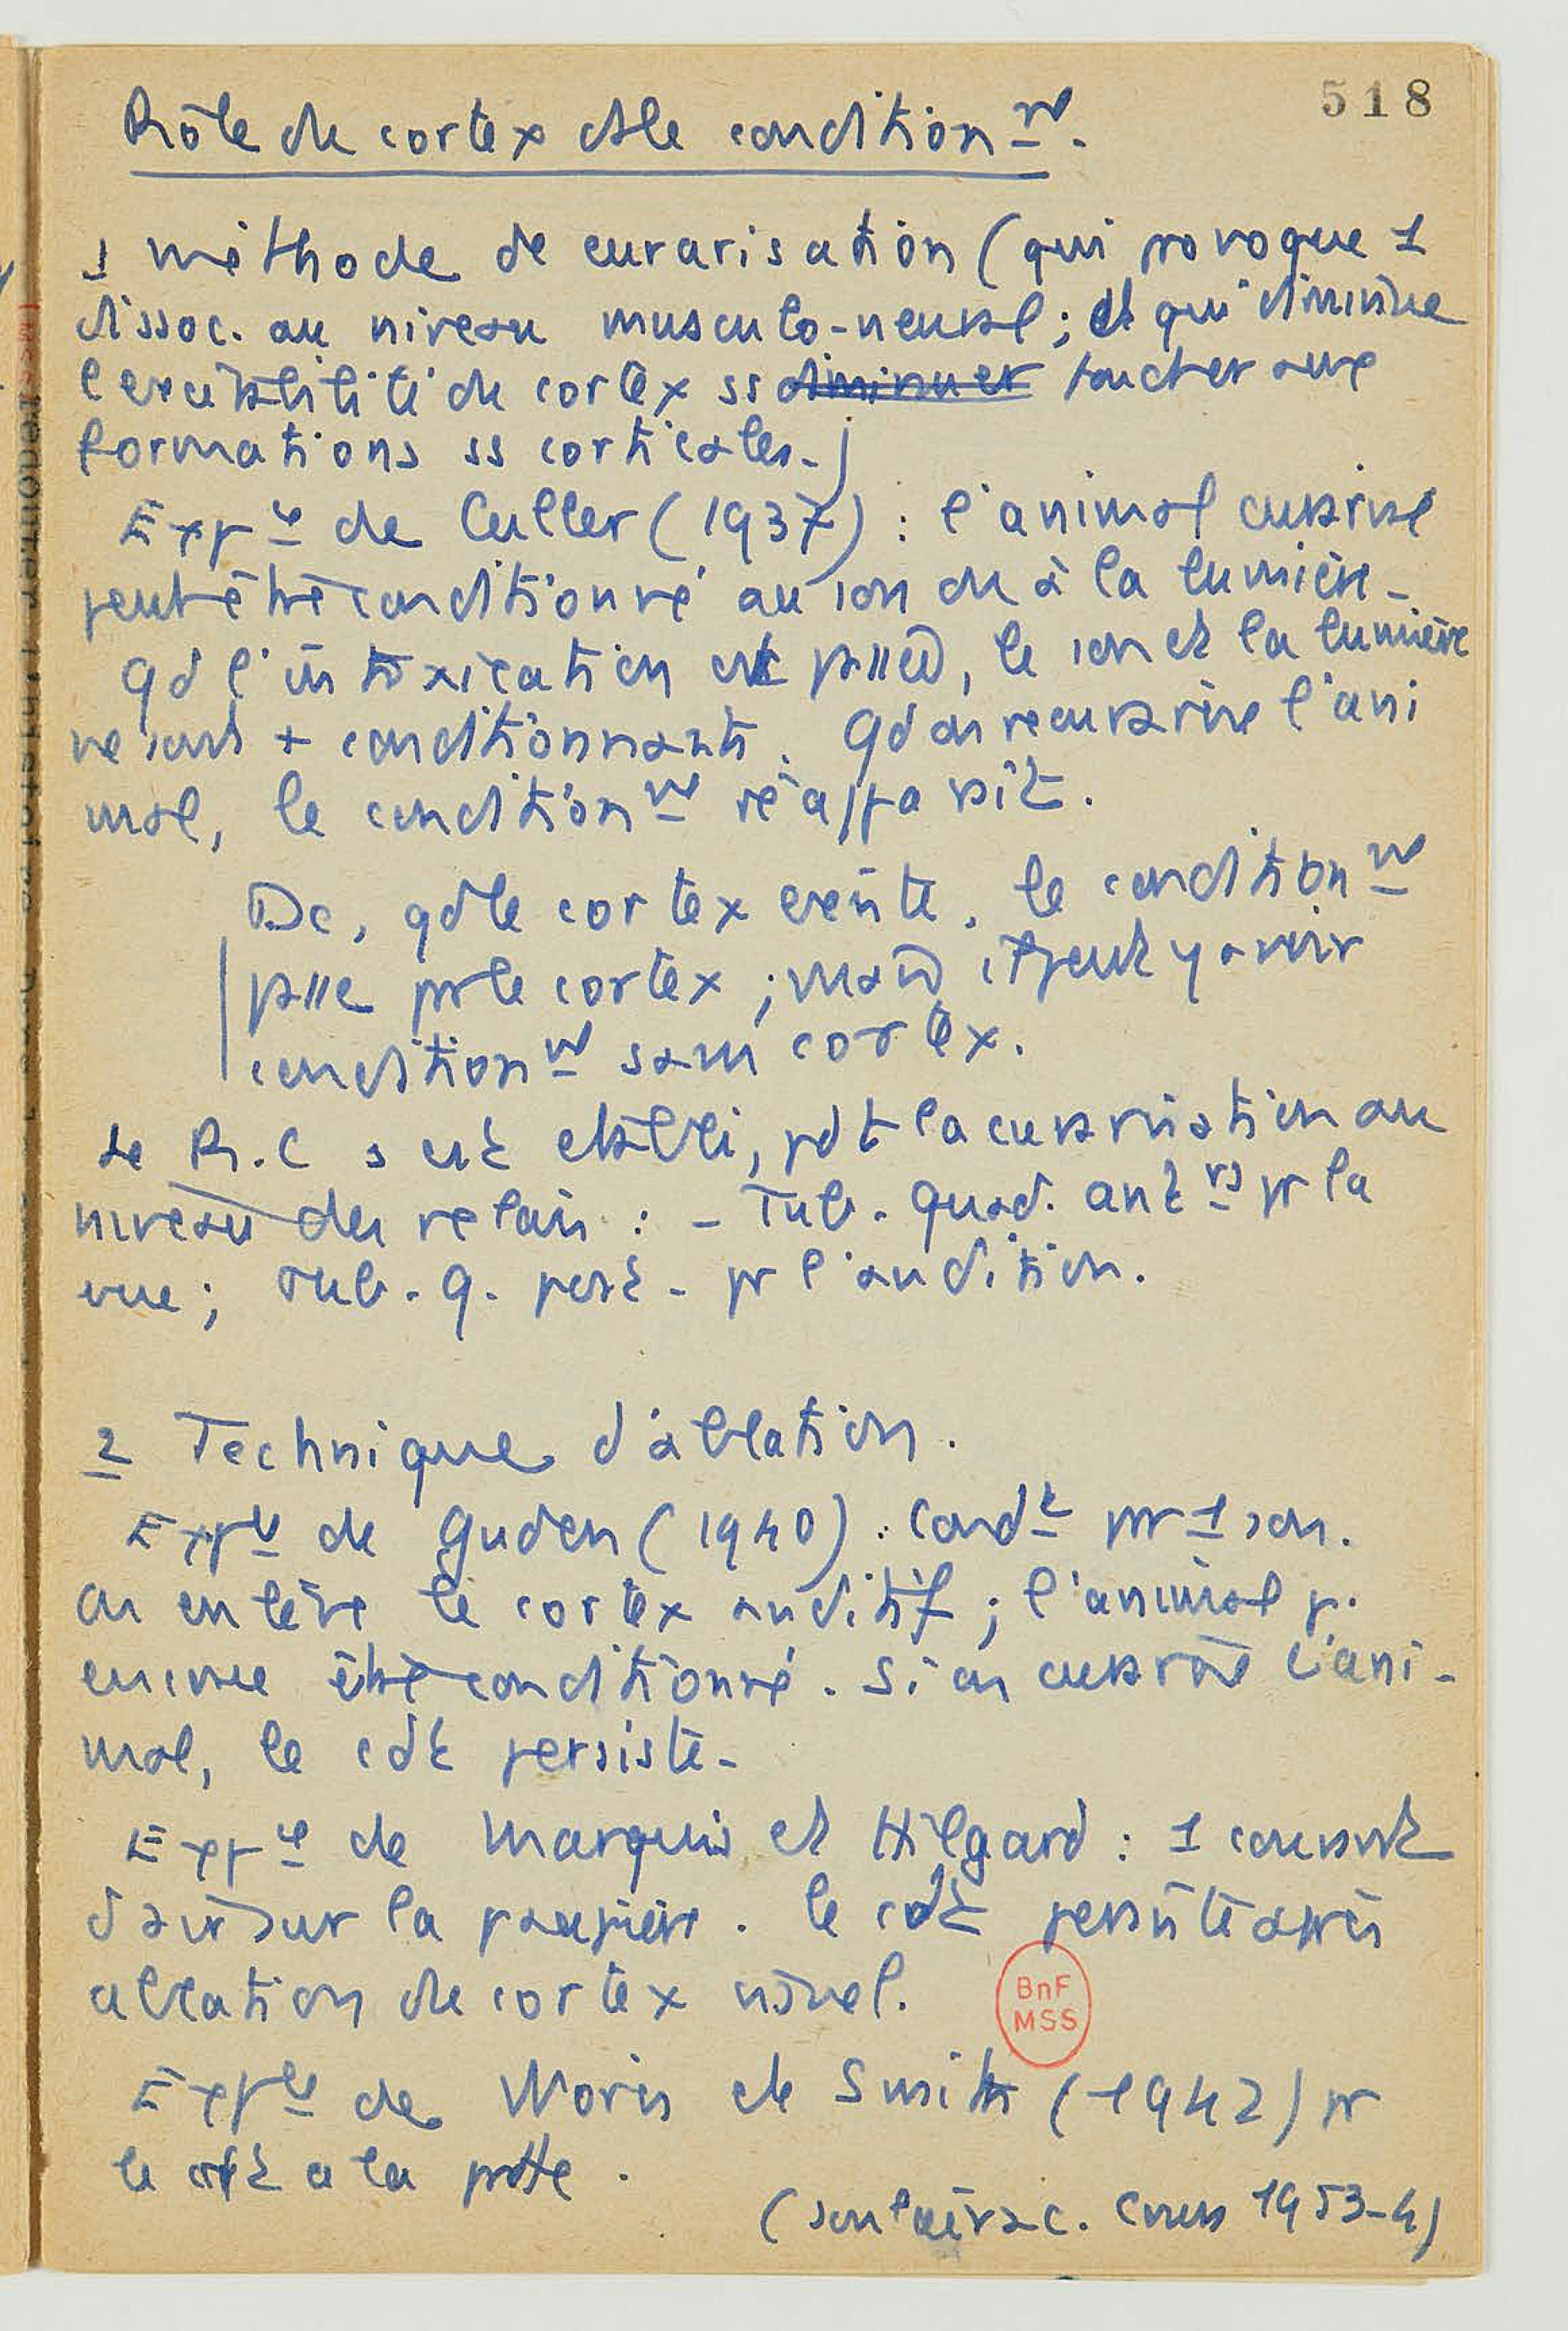 518
Rôle du cortex ds le condition nt.
1 méthode de curarisation (qui provoque 1
dissoc. au niveau musculo-neural ; et qui diminue
l'excitabilité du cortex ss diminuer toucher aux
formations ss corticales.)
Expce de Culler (1937) : l'animal curarisé
peut être conditionné au son ou à la lumière.
Qd l'intoxication est passée, le son et la lumière
ne sont + conditionnants. Qd on recurarise l'ani
mal, le condition nt réapparaît.
Dc, qd le cortex existe, le condition nt
passe par le cortex ; mais il peut y avoir
condition nt sans cortex.
Le R.C s'est établi, pdt la curarisation au
niveau des relais : - Tub. quad. ant rs pr la
vue ; Tub. q. post. pr l'audition.
2 Technique d'ablation.
Expce de Guden (1940) : Condt pr 1 son.
On enlève le cortex auditif ; l'animal p.
encore être conditionné. Si on curarise l'ani-
mal, le cdt persiste.
Expce de Marquis et Hilgard : 1 courant
d'air sur la paupière. le cdt persiste après
ablation du cortex visuel.
BnF
MSS
Expce de Moris et Smith (1942) pr
le cdt a la patte.
(Soulairac. Cours 1953-4)